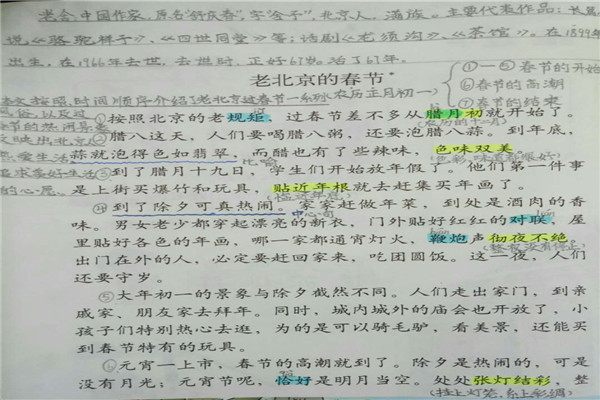 老舍:中国作家,原名"舒庆春",字"舍予",北京人,满族。主要代表作品:长篇
说《骆驼祥子》、《四世同堂》等;话剧《龙须沟》、《茶馆》。在1899年
出生,在1966年去世,去世时,正好67岁。活了67年。
老北京的春节
①—⑤春节的开始
⑥春节的高潮
⑦春节的结束
本文按照时间顺序介绍了老北京过春节一系列
农历正月初一
①按照北京的老规矩,过春节差不多从腊月初就开始了。
②腊八这天,人们要喝腊八粥,还要泡腊八蒜。到年底,
蒜就泡得色如翡翠,而醋也有了些辣味,色味双美。
③到了腊月十九日,学生们开始放年假了。他们第一件事
是上街买爆竹和玩具,贴近年根就去赶集买年画了。
④到了除夕可真热闹。家家赶做年菜,到处是酒肉的香
中心句
味。男女老少都穿起漂亮的新衣,门外贴好红红的对联,屋
里贴好各色的年画,哪一家都通宵灯火,鞭炮声彻夜不绝。
出门在外的人,必定要赶回家来,吃团圆饭。这一夜,人们
还要守岁。
⑤大年初一的景象与除夕截然不同。人们走出家门,到亲
戚家、朋友家去拜年。同时,城内城外的庙会也开放了,小
孩子们特别热心去逛,为的是可以骑毛驴,看美景,还能买
到春节特有的玩具。
⑥元宵一上市,春节的高潮就到了。除夕是热闹的,可是
没有月光;元宵节呢,恰好是明月当空。处处张灯结彩,整
(挂上灯笼,系上彩绸)